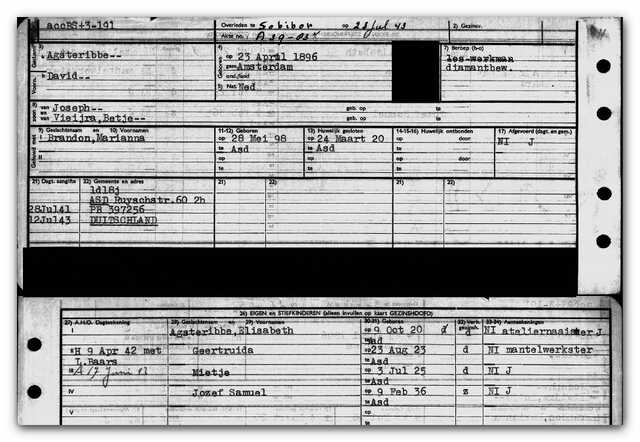 accBS+3-191 Overleden te Sobibor op 23 Jul 43 2) Gezinsv.
Akte no. A 39-
3) 4) 7) Beroep (h-o)
Agsteribbe-- op 23 April 1896
gem Amsterdam diamantbew.
David-- 
5) Nat Ned
van Joseph-- geb. op te
zoon en van Vieijra, Betje-- geb. op te
9) Geslachtsnaam en 10) Voornamen 11-12) Geboren 13) Huwelijk gesloten 14-15-16) Huwelijk ontbonden 17) Afgevoerd (dagt. en gem.)
I Brandon, Marianna op 28 Mei 98 op 24 Maart 20 op door: NI J
te Asd te Asd te
II op op op door:
te te te
21) Dagt. aangifte 22) Gemeente en adres 21) 22) 21) 22)
1d18j
ASD Ruyschstr.60 2h
28Jul41 PR 397256
12Jul43 DUITSCHLAND
26) EIGEN en STIEFKINDEREN (alleen invullen op kaart GEZINSHOOFD)
27) A.H.O. Dagteekening 28) Geslachtsnaam en 29) Voornamen 30-31) Geboren 32) Verh. gezinsh. 33-34) Aanteekeningen
I Agsteribbe, Elisabeth op 9 Oct 20 d NI ateliernaaister J
te Asd
II H 9 Apr 42 met Geertruida op 23 Aug 23 d NI mantelwerkster
L.Baars te Asd
III 17 Juni Mietje op 3 Jul 25 d NI J
te Asd
IV Jozef Samuel op 9 Feb 36 z NI J
te Asd
V op
te